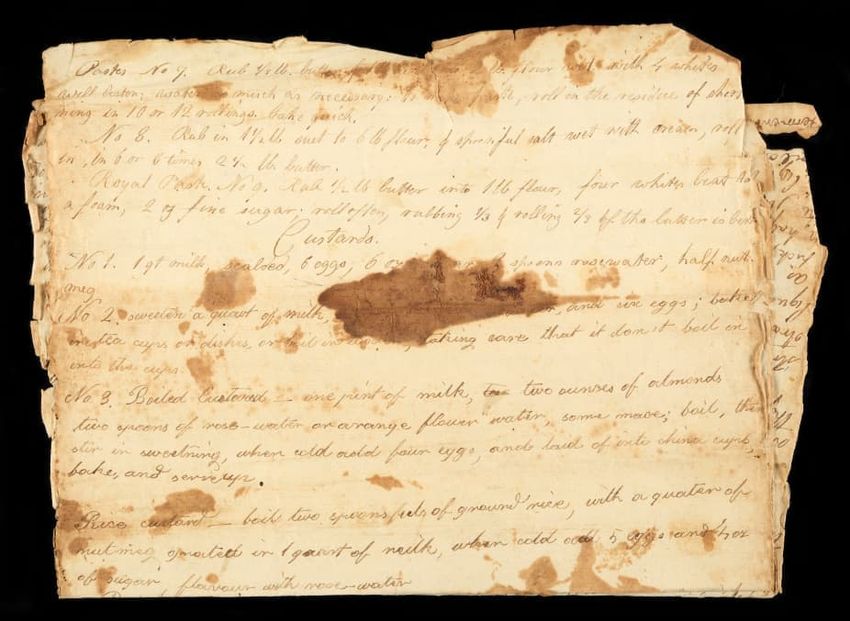 Paste No 7. Rub ½ lb. butter flour wet with 4 whites
well beaten; water so much as necessary: paste, roll in the residue of shor
ning in 10 or 12 rollings bake quick.
No 8. Rub in 1½ lb suet to 6 lb flour, & spoonful salt wet with cream, roll
in, in 6 or 8 times 2½ lb. butter.
Royal Paste. No 9. Rub ½ lb butter into 1 lb flour, four whites beat to
a foam, 2 oz fine sugar: roll often, rubbing ⅓ & rolling ⅔ of the butter is best
Custards.
No 1. 1 qt milk, scalded, 6 eggs, 6 oz spoons rosewater, half nut-
meg
No 2. sweeten a quart of milk, and six eggs; bake
in tea cups or dishes, or boil in taking care that it don't boil in
into the cups.
No 3. Boiled Custard – one pint of milk, two ounces of almonds
two spoons of rose-water or arange flower water, some mace; boil, then
stir in sweetning, when cold add four eggs, and laid of into china cups,
bake, and serve up.
Rice custard – boil two spoonsfuls of ground rice, with a quater of
nutmeg grated in 1 quart of milk, when cold add 5 eggs and 4 oz
of sugar, flavour with rose-water